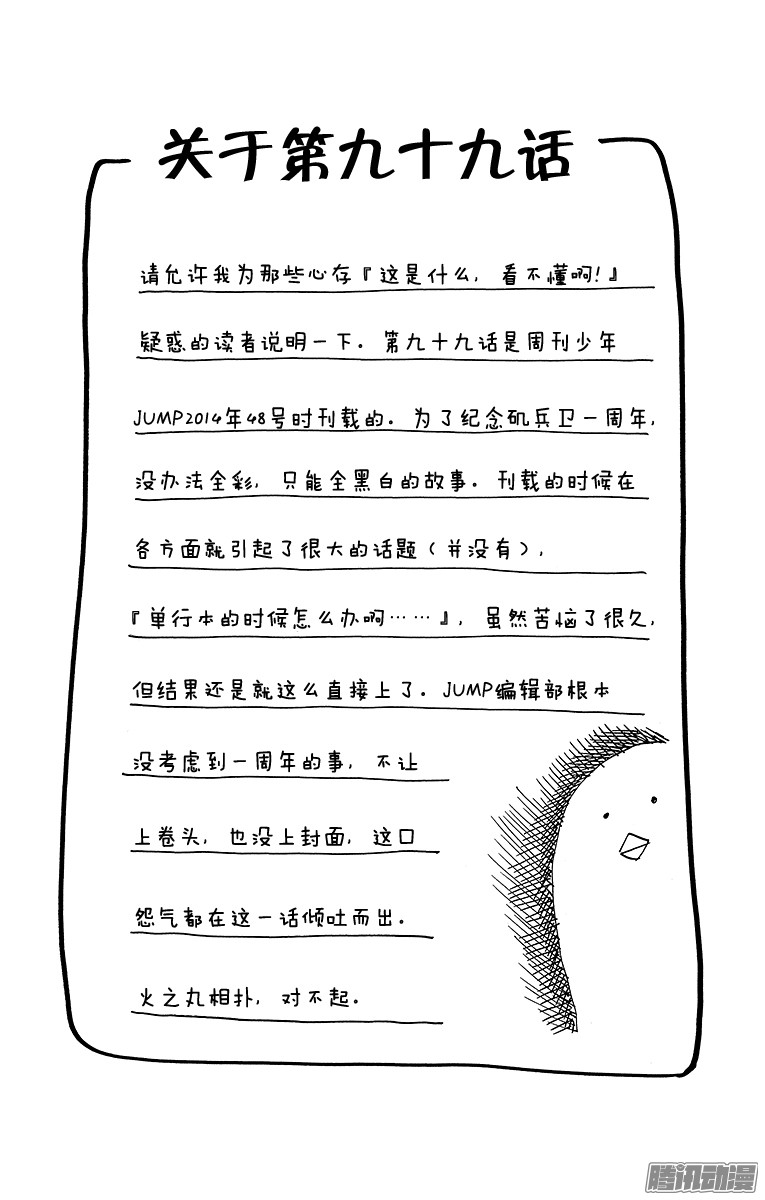 关于第九十九话
请允许我为那些心存『这是什么，看不懂啊！』
疑惑的读者说明一下．第九十九话是周刊少年
JUMP2014年48号时刊载的．为了纪念矶兵卫一周年，
没办法全彩，只能全黑白的故事．刊载的时候在
各方面就引起了很大的话题（并没有），
『单行本的时候怎么办啊……』，虽然苦恼了很久，
但结果还是就这么直接上了．JUMP编辑部根本
没考虑到一周年的事，不让
上卷头，也没上封面，这口
怨气都在这一话倾吐而出．
火之丸相扑，对不起．
腾讯动漫